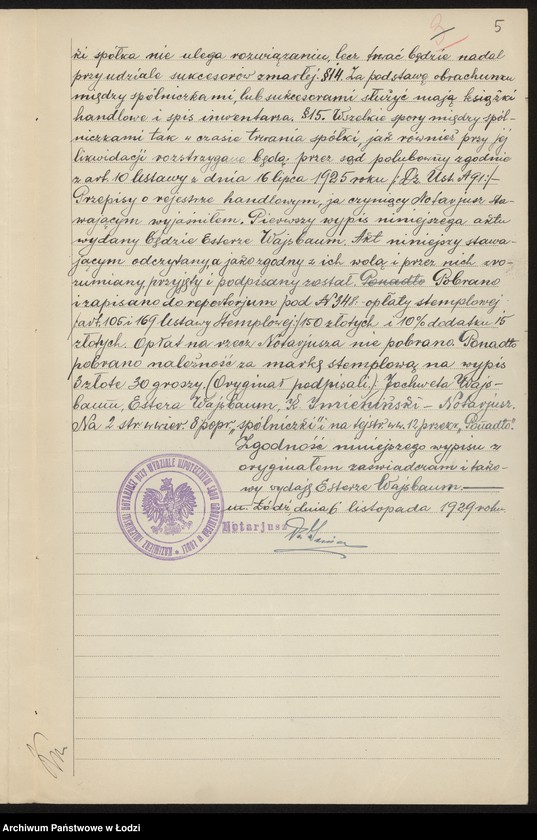 5
ki spółka nie ulega rozwiązaniu, lecz trwać będzie nadal
przy udziale sukcesorów zmarłej. §14. Za podstawę obrachunku
między spólniczkami, lub sukcesorami służyć mają książki
handlowe i spis inwentarza. §15. Wszelkie spory między spól-
niczkami tak w czasie trwania spółki, jak również przy jej
likwidacji rozstrzygane będą przez sąd polubowny zgodnie
z art. 10 Ustawy z dnia 16 lipca 1925 roku /:Dz. Ust. №91:/-
Przepisy o rejestrze handlowym, ja czyniący Notarjusz sta-
wającym wyjaśniłem. Pierwszy wypis niniejszego aktu
wydany będzie Esterze Wajsbaum. Akt niniejszy stawa-
jącym odczytany, a jako zgodny z ich wolą i przez nich zro-
zumiany, przyjęty i podpisany został. Ponadto Pobrano
i zapisano do repertorjum pod №348: opłaty stemplowej
/art. 105 i 169 Ustawy stemplowej:/ 150 złotych i 10% dodatku 15
złotych. Opłat na rzecz Notarjusza nie pobrano. Ponadto
pobrano należność za markę stemplową na wypis
3 złote 30 groszy. (Oryginał podpisali:) Jochweta Wajs-
baum, Estera Wajsbaum, K. Imieniński - Notarjusz.
Na 2 str w wier. 8 popr. „spólniczki" i na tejstr w w. 12 przekr. „Ponadto".
Zgodność niniejszego wypisu z
oryginałem zaświadczam i tako-
wy wydaję Esterze Wajsbaum.
m. Łódź, dnia 6 listopada 1929 roku.
Notarjusz
Archiwum Państwowe w Łodzi